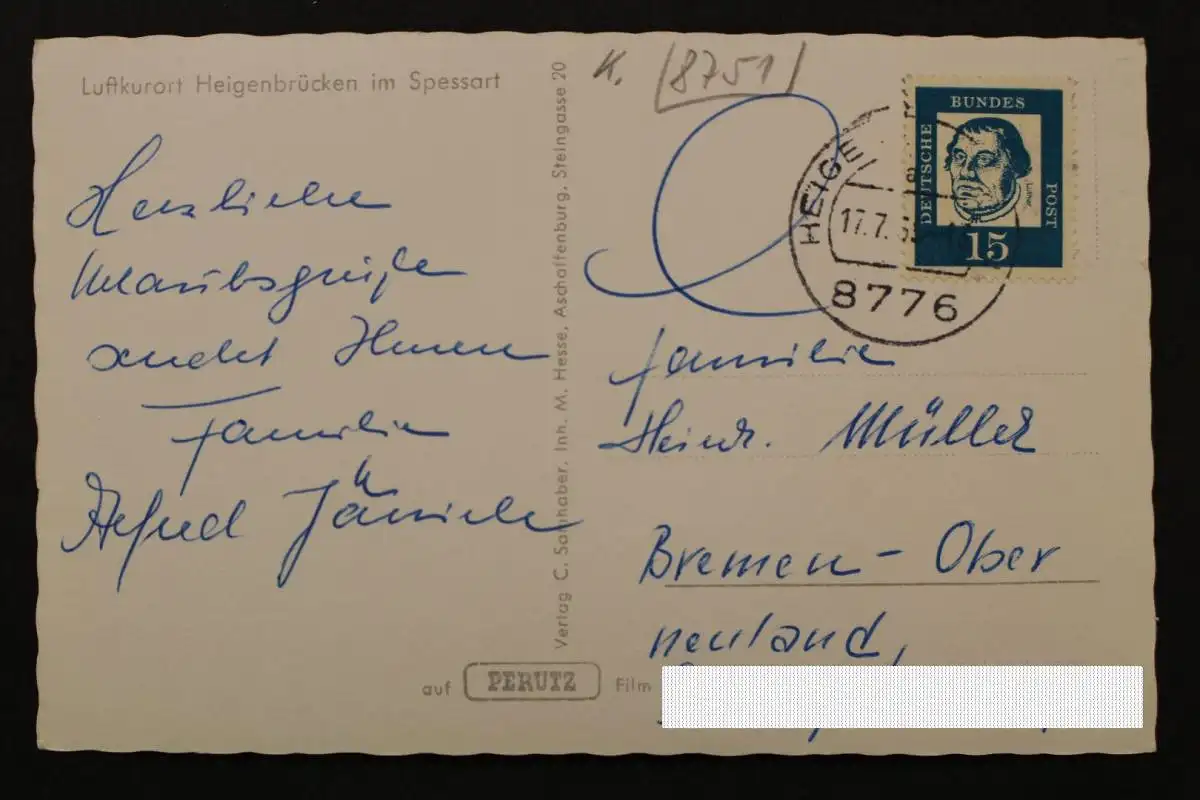 Luftkurort Heigenbrücken im Spessart
Herzliche
Urlaubsgrüße
sendet Ihnen
Familie
Alfred
Verlag C. Samhaber, Inh. M. Hesse, Aschaffenburg, Steingasse 20
auf PERUTZ Film
K. (8751)
HEIGE
17.7.6
8776
DEUTSCHE BUNDES POST
15
Familie
Heinr. Müller
Bremen-Ober
neuland,